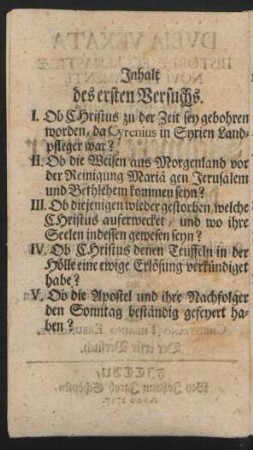 Inhalt
des ersten Versuchs.
I. Ob CHristus zu der Zeit sey gebohren
worden, da Cyrenius in Syrien Land-
pfleger war?
II. Ob die Weisen aus Morgenland vor
der Reinigung Mariä gen Jerusalem
und Bethlehem kommen seyn?
III. Ob diejenigen wieder gestorben, welche
CHristus auferwecket, und wo ihre
Seelen indessen gewesen seyn?
IV. Ob CHristus denen Teuffeln in der
Hölle eine ewige Erlösung verkündiget
habe?
V. Ob die Apostel und ihre Nachfolger
den Sonntag beständig gefeyert ha-
ben?